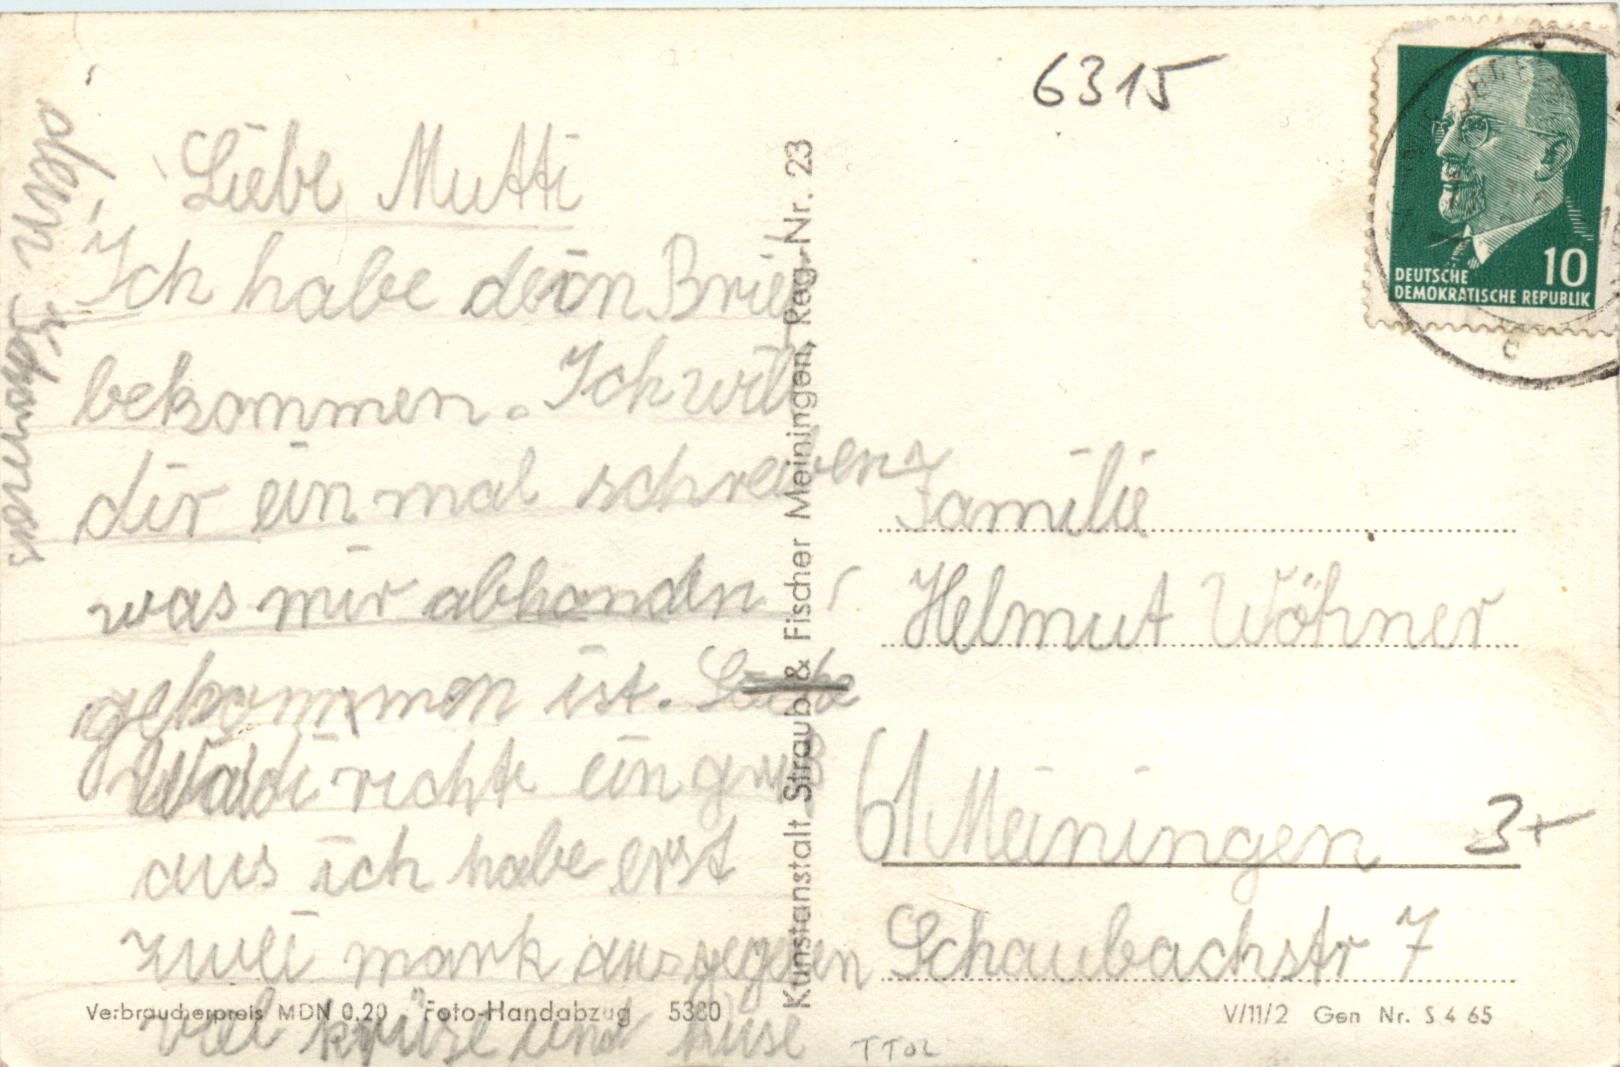 6315
Liebe Mutti
Ich habe dein Brief
bekommen. Ich will
dir ein mal schreiben
was mir abhanden
gekommen ist. Liebe
Waldi richte ein gruß
aus ich habe erst
zwei mark ausgegeben
viel krüse und küse
Familie
Helmut Wöhner
61 Meiningen
Schaubachstr 7
3+
TTOL
DEUTSCHE
DEMOKRATISCHE REPUBLIK
10
Kunstanstalt Straub & Fischer Meiningen, Reg.-Nr. 23
Verbraucherpreis MDN 0.20 Foto-Handabzug 5380
V/11/2 Gen Nr. S 4 65